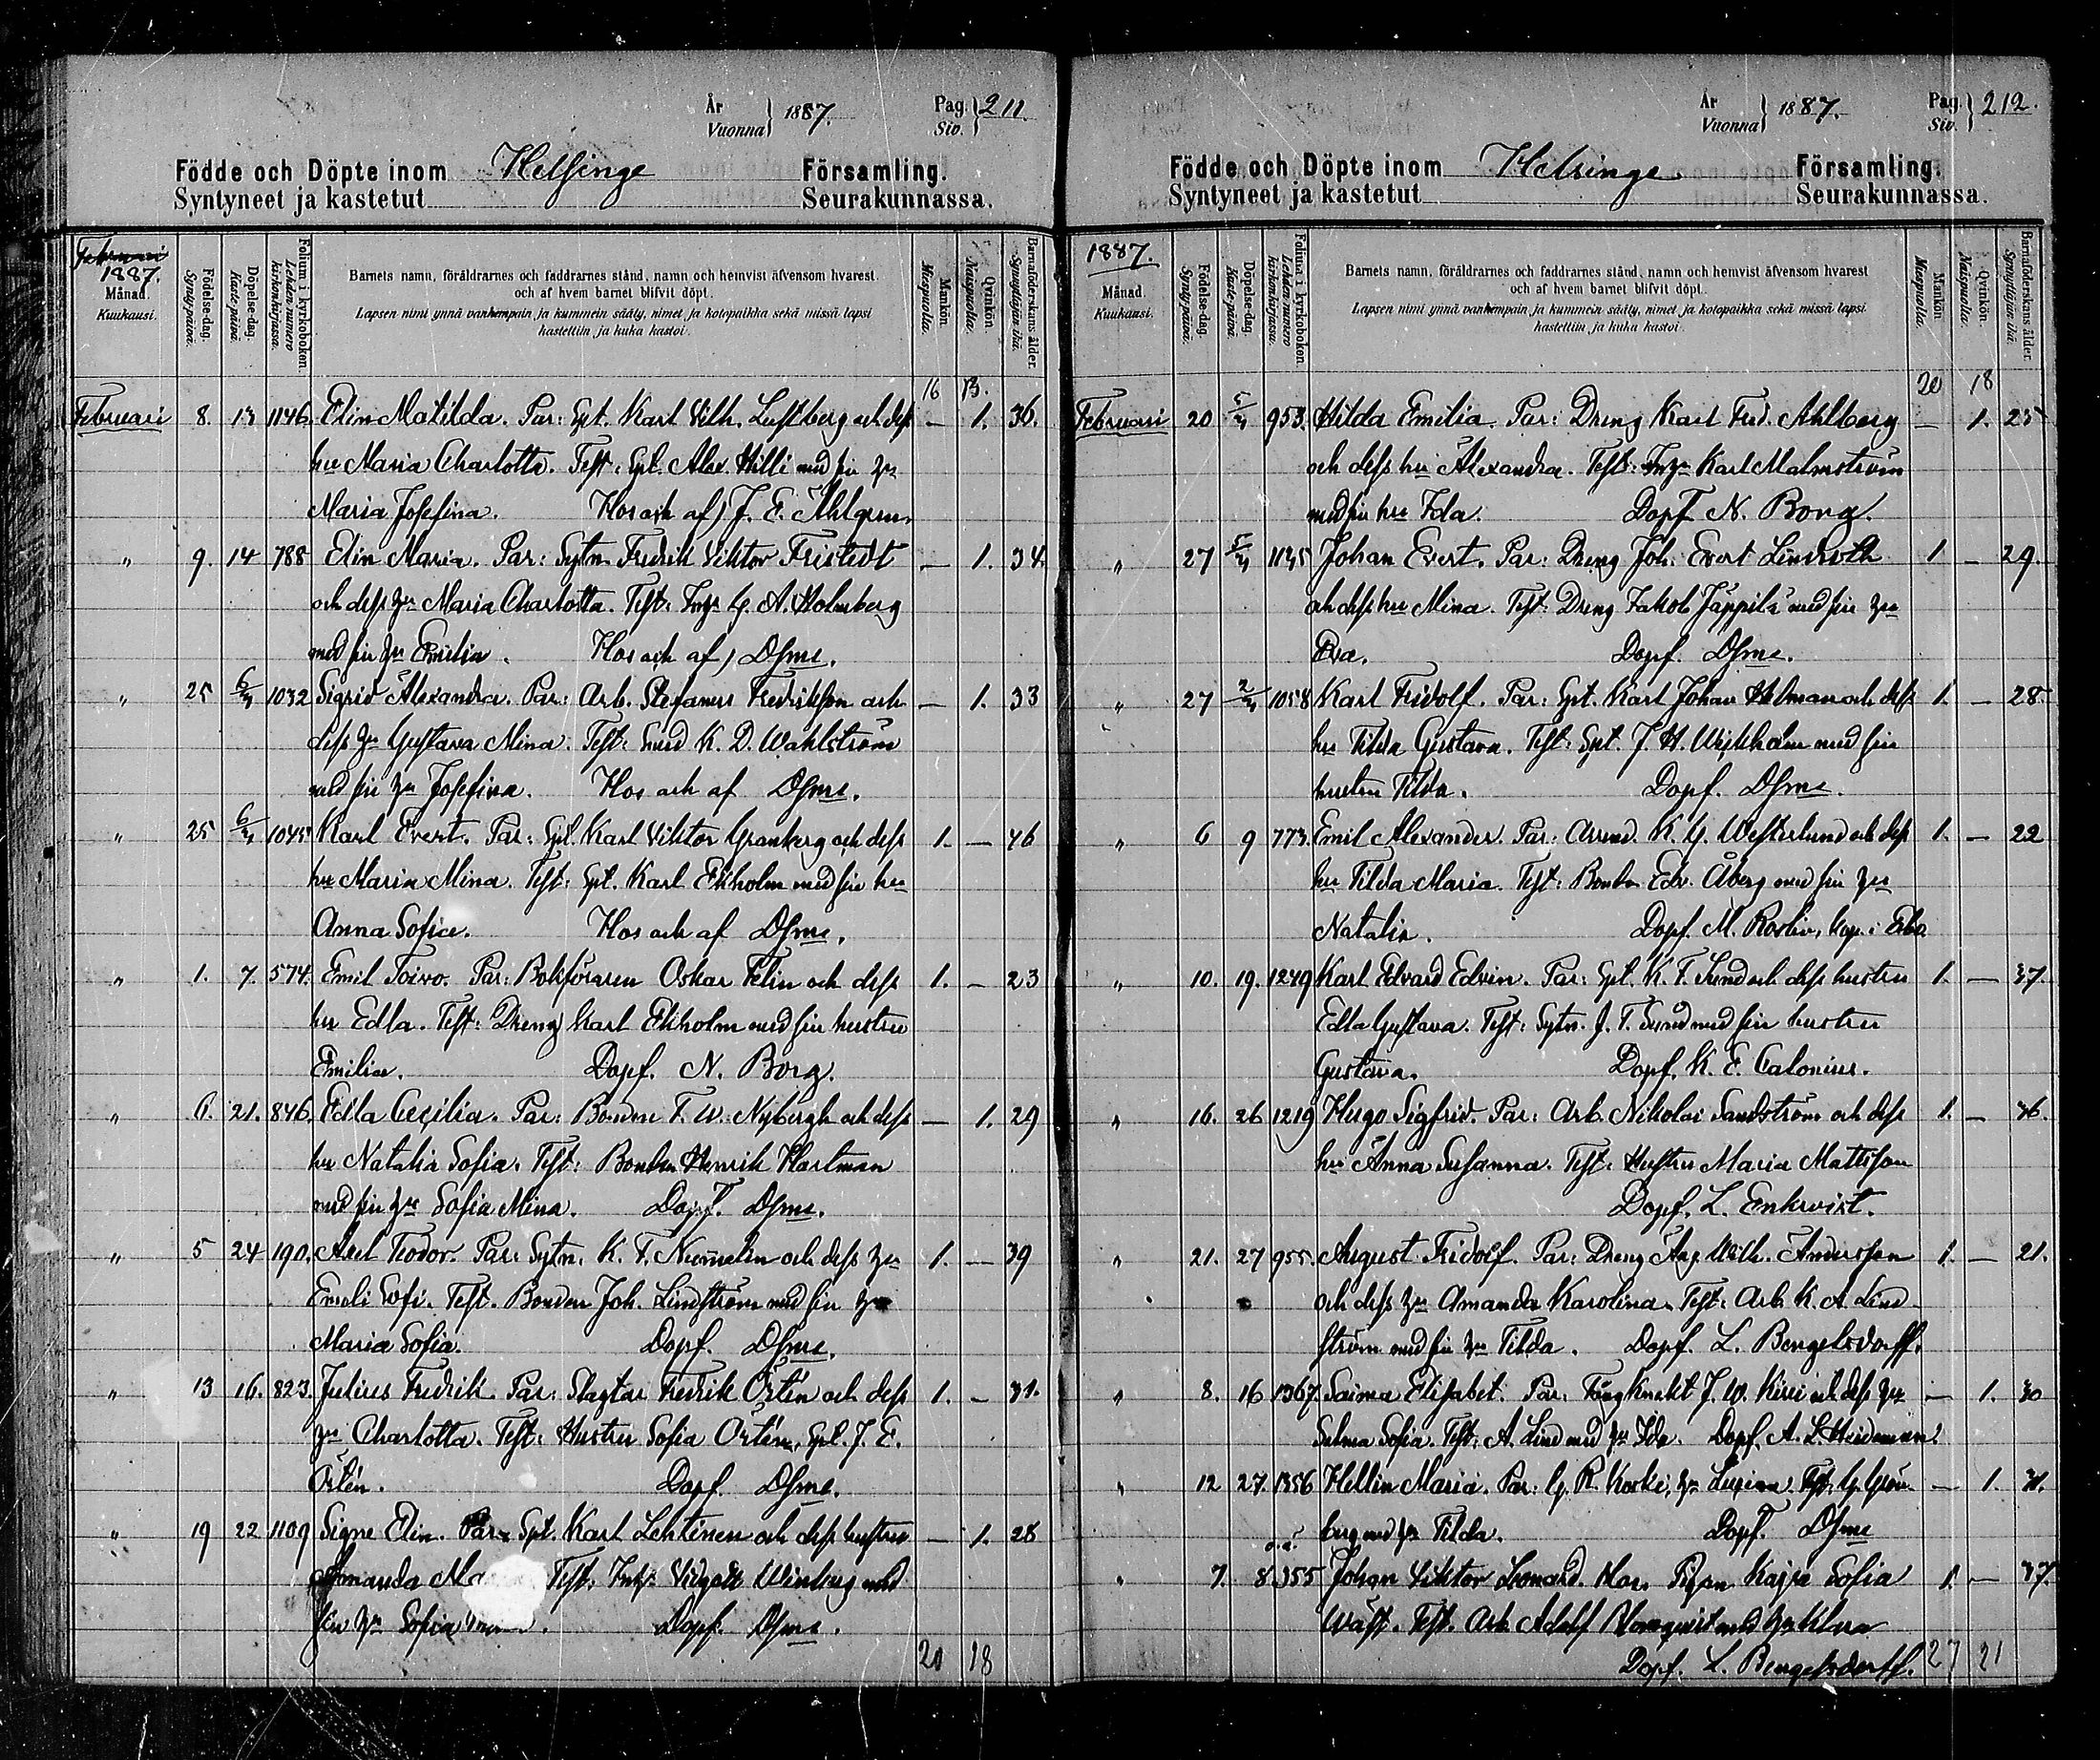 År Vuonna } 1887. Pag. Siv. } 211
Födde och Döpte inom Helsinge Församling.
Syntyneet ja kastetut Seurakunnassa.
Februari 1887. Månad. Kuukausi.
Födelse-dag. Syntypäivä.
Döpelse-dag. Kastepäivä.
Folium i kyrkoboken. Lehden numero kirkonkirjassa.
Barnets namn, föräldrarnes och faddrarnes stånd, namn och hemvist äfvensom hvarest
och af hvem barnet blifvit döpt.
Lapsen nimi ynnä vanhempain ja kummein sääty, nimet ja kotopaikka sekä missä lapsi
kastettiin ja kuka kastoi.
Mankön. Miespuolia.
Qvinkön. Naispuolia.
Barnaföderskans ålder. Synnyttäjän ikä.
16 13.
Februari 8. 13 1146. Elin Matilda. Par: Spt. Karl Vilh. Luftberg och dess — 1. 36.
hu Maria Charlotta. Test: Spt. Alex. Hilli med sin hu
Maria Josefina. Hos och af J. E. Ahlgren.
" 9. 14 788 Elin Maria. Par: Sytn. Fredrik Viktor Fristedt — 1. 34.
och dess hu Maria Charlotta. Test: G. A. Holmberg
med sin hu Emilia. Hos och af Dsme.
" 25 6/3 1032 Sigrid Alexandra. Par: Arb. Stefanus Fredriksson och — 1. 33
dess hu Gustava Mina. Test: Smed K. D. Wahlström
med sin hu Josefina. Hos och af Dsme.
" 25 6/3 1045 Karl Evert. Par: Spt. Karl Viktor Granberg och dess 1. — 46
hu Maria Mina. Test: Spt. Karl Ekholm med sin hu
Anna Sofia. Hos och af Dsme.
" 1. 7. 574. Emil Toivo. Par: Bokföraren Oskar Felin och dess 1. — 23
hu Edla. Test: Dreng Karl Ekholm med sin hustru
Emilia. Döpf. N. Borg.
" 6. 21. 846. Edla Cecilia. Par: Bonden F. W. Nybergh och dess — 1. 29
hu Natalia Sofia. Test: Bonden Henrik Hartman
med sin hu Sofia Mina. Döpf. Dsme.
" 5 24 190. Axel Teodor. Par: Sytn. K. F. Nummelin och dess hu 1. — 39
Emeli Sofi. Test. Bonden Joh. Lindström med sin hu
Maria Sofia. Döpf. Dsme.
" 13 16. 823. Julius Fredrik. Par: Slagtar Fredrik Örtén och dess 1. — 31.
hu Charlotta. Test: Hustru Sofia Örtén, Spt. J. E.
Örtén. Döpf. Dsme.
" 19 22 1109 Signe Elin. Par: Spt. Karl Lehtinen och dess hustru — 1. 28
Amanda Test: Winberg med
sin hu Sofia Döpf. Dsme.
20 18
År Vuonna } 1887. Pag. Siv. } 212.
Födde och Döpte inom Helsinge Församling.
Syntyneet ja kastetut Seurakunnassa.
1887. Månad. Kuukausi.
Födelse-dag. Syntypäivä.
Döpelse-dag. Kastepäivä.
Folium i kyrkoboken. Lehden numero kirkonkirjassa.
Barnets namn, föräldrarnes och faddrarnes stånd, namn och hemvist äfvensom hvarest
och af hvem barnet blifvit döpt.
Lapsen nimi ynnä vanhempain ja kummein sääty, nimet ja kotopaikka sekä missä lapsi
kastettiin ja kuka kastoi.
Mankön. Miespuolia.
Qvinkön. Naispuolia.
Barnaföderskans ålder. Synnyttäjän ikä.
20 18
Februari 20 5/3 953. Hilda Emilia. Par: Dreng Karl Fred. Ahlberg — 1. 25
och dess hu Alexandra. Test: Karl Malmström
med sin hu Ida. Döpf. N. Borg.
" 27 5/3 1135 Johan Evert. Par: Dreng Joh. Evert Lindroth 1. — 29.
och dess hu Mina. Test: Dreng Jakob Jäppilä med sin hu
Eva. Döpf. Dsme.
" 27 2/3 1058 Karl Fridolf. Par: Spt. Karl Johan Helman och dess 1. — 28.
hu Tilda Gustava. Test: Spt. J. H. Wejkholm med sin
hustru Tilda. Döpf. Dsme.
" 6 9 773. Emil Alexander. Par: Arrend. K. G. Westerlund och dess 1. — 22
hu Tilda Maria. Test: Bonden Edv. Åberg med sin hu
Natalia. Döpf. M. Roslin, kap. i Esbo
" 10. 19. 1249 Karl Edvard Edvin. Par: Spt. K. F. Sund och dess hustru 1. — 37.
Edla Gustava. Test: Sytn. J. F. Sund med sin hustru
Gustava. Döpf. K. E. Calonius.
" 16. 26 1219 Hugo Sigfrid. Par: Arb. Nikolai Sandström och dess 1. — 36.
hu Anna Susanna. Test: Hustru Maria Mattsson
Döpf. L. Enkvist.
" 21. 27 955. August Fridolf. Par: Dreng Aug. Wilh. Andersson 1. — 21.
och dess hu Amanda Karolina. Test: Arb. K. A. Lind-
ström med sin hu Tilda. Döpf. L. Bengelsdorff.
" 8. 16 1367. Saima Elisabet. Par: Fångknekt J. W. Kivi och dess hu — 1. 30
Selma Sofia. Test: A. Lind med hu Ida. Döpf. A. L. Heideman.
" 12 27. 1356 Hellin Maria. Par: G. R. Koski, hu Lusina. Test: G. Grön- — 1. 31.
berg med hu Tilda. Döpf. Dsme
" 7. 8. 1355 Johan Viktor Leonard. Mor: Pigan Kajsa Sofia 1. — 37.
Wäst. Test. Arb. Adolf Blomqvist med hu Klara
Döpf. L. Bengelsdorff. 27 21